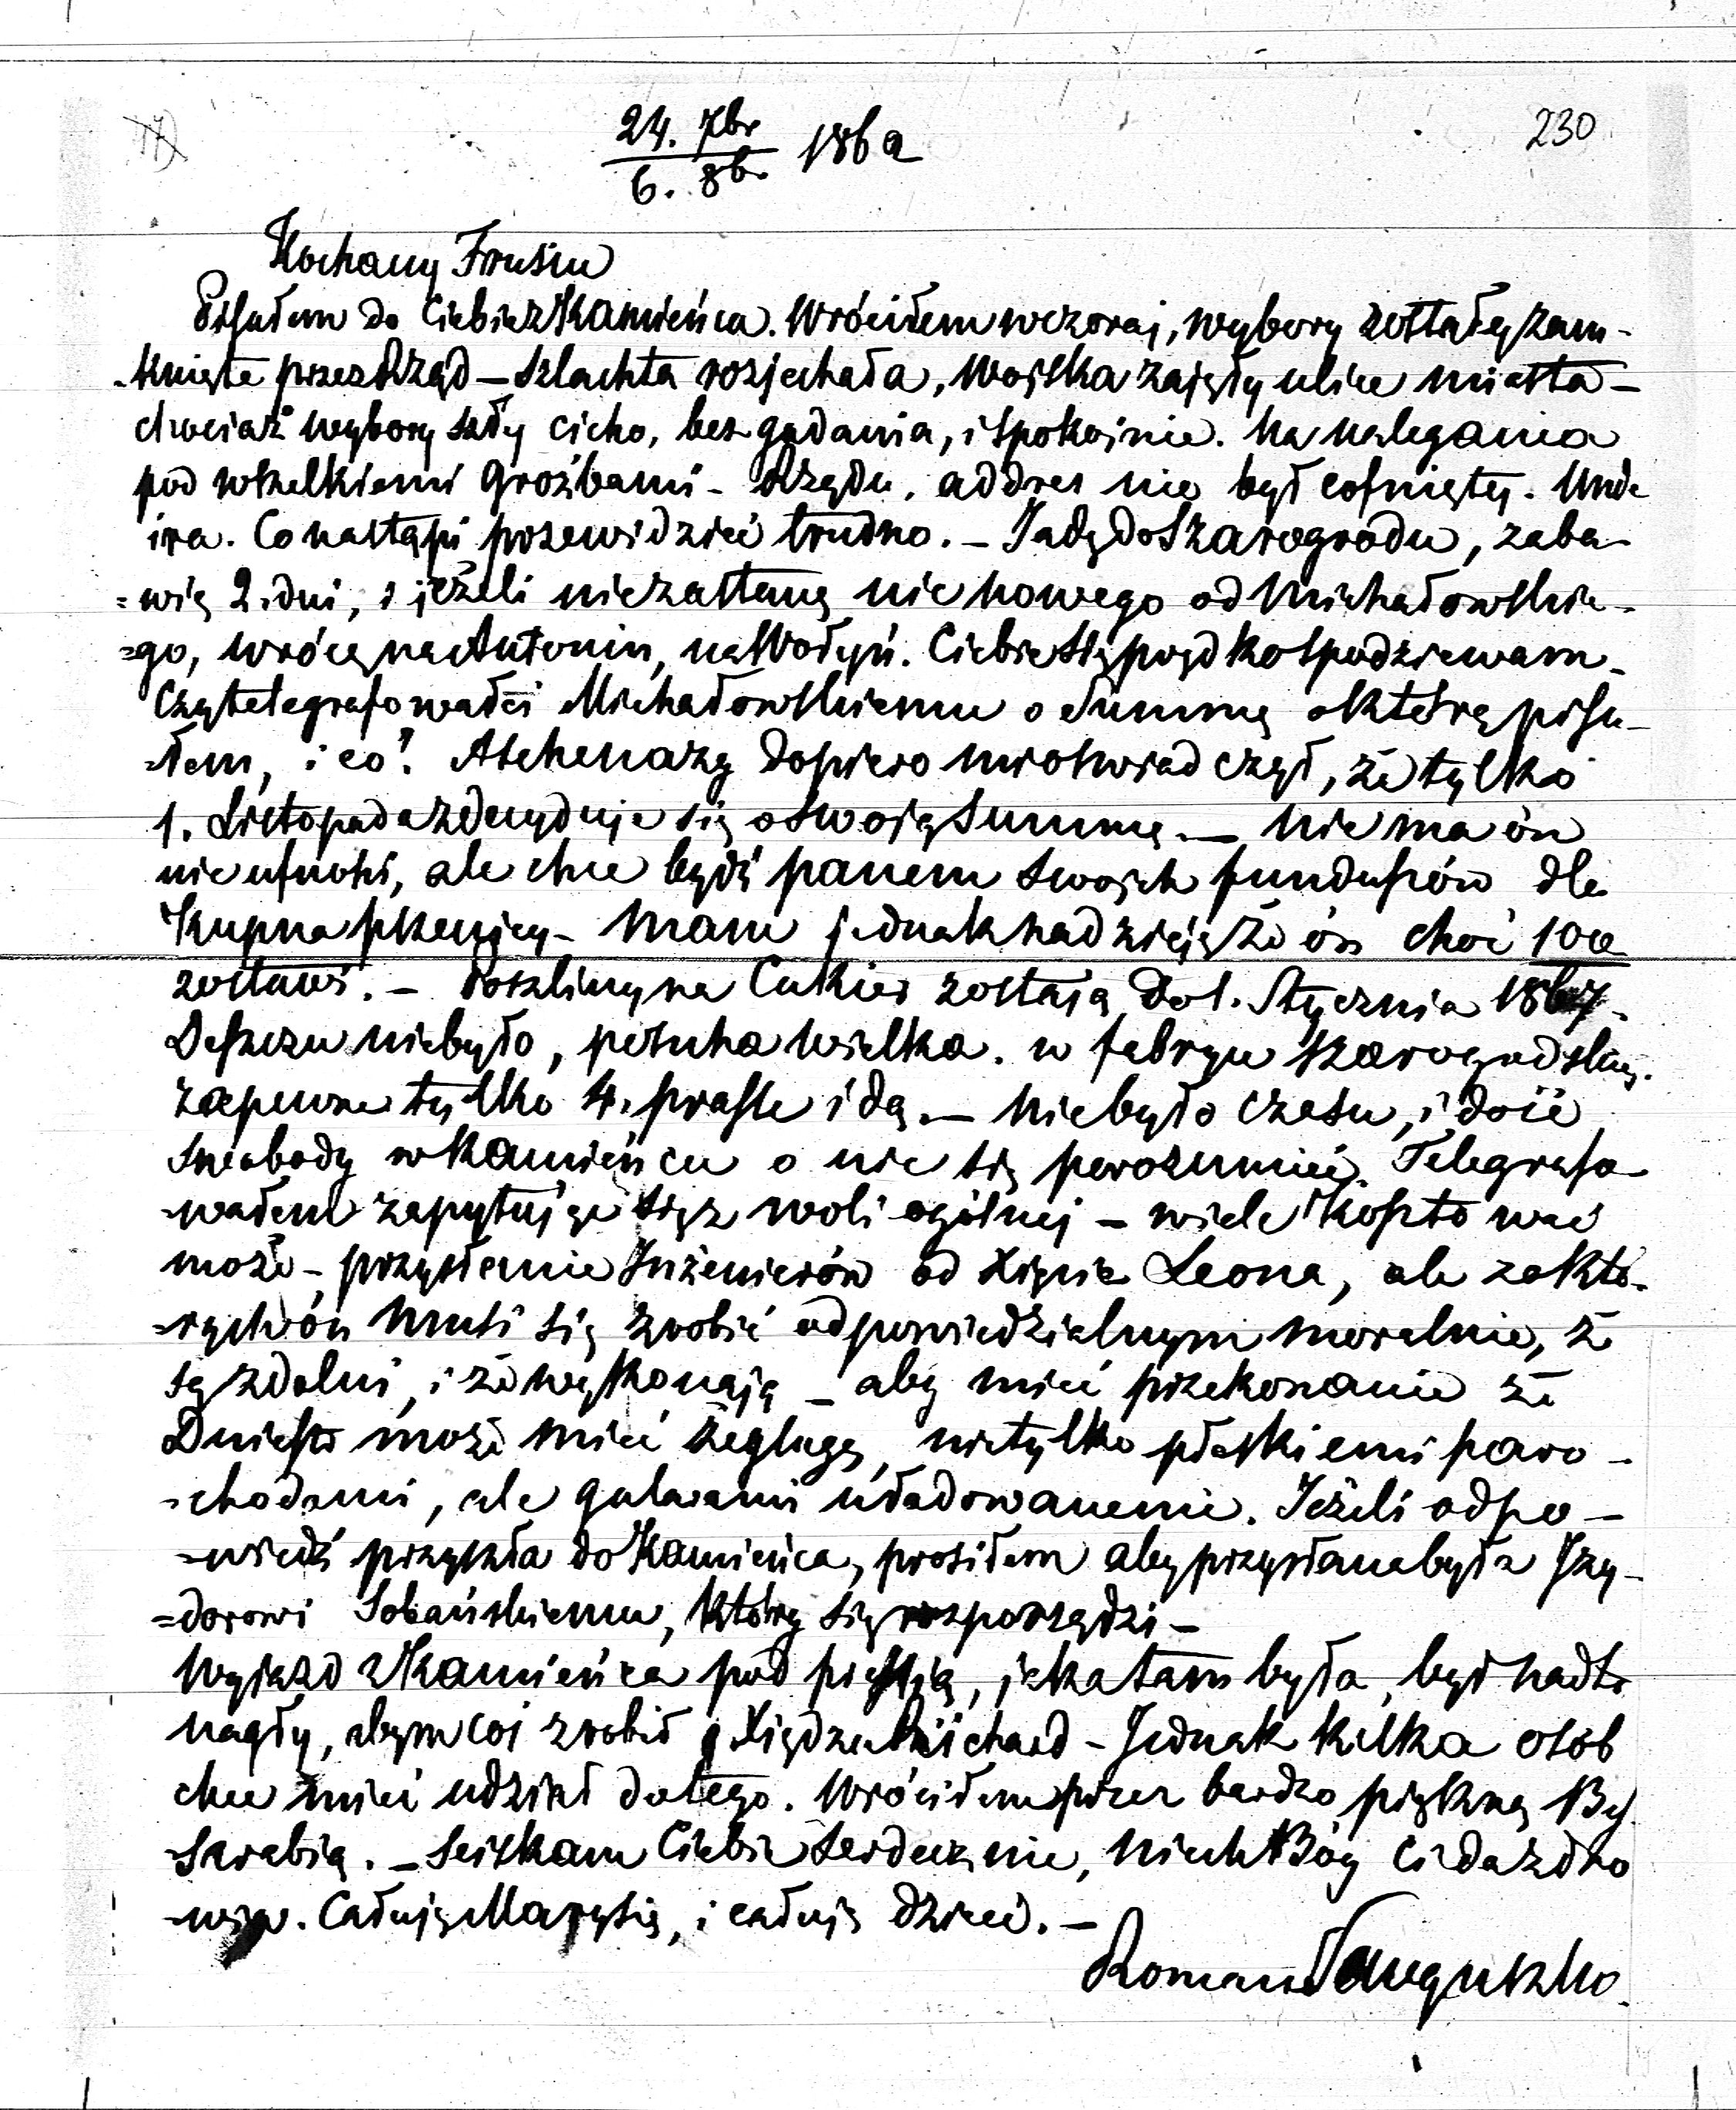 17)
24. 7br 1862
6. 8br
230
Kochany Frusiu
Pisałem do Ciebie z Kamieńca. Wróciłem wczoraj, wybory zostały zam-
-knięte przez Rząd – Szlachta rozjechała, Wojska zajęły ulice miasta –
chociaż wybory szły cicho, bez gadania, i spokojnie. Na nalegania
pod wszelkiemi Groźbami – Rządu, addres nie był cofnięty.
Co nastąpi przewidzieć trudno. – Jadę do Szarogrodu, zaba-
=wię 2. dni, i jeżeli niezastanę nic nowego od Michałowskie-
=go, wrócę na Antonin, na Wołyń. Ciebie się prędko spodziewam –
Czy telegrafowałeś Michałowskiemu o Summę o którą pisa-
-łem, i co? Aschenazy dopiero mi oświadczył, że tylko
1. Listopada zdecyduje się o swoją Summę. – Nie ma ón
nie ufności, ale chce bydź panem swoich funduszów dla
Kupna pszenicy – Mam jednak nadzieję że ón choć 100
zostawi. – Poszliny na Cukier zostają do 1. Stycznia 1867.
Deszczu niebyło, posucha wielka. w fabryce Szarogrodskiej
zapewne tylko 4. prasse idą. – Niebyło czasu, i dość
swobody w Kamieńcu o nic się porozumieć. Telegrafo-
-wałem zapytując się z woli ogólnej – wiele kosztować
może – przysłanie Inżenierów od Xięcia Leona, ale za któ-
-rych ón musi się zrobić odpowiedzialnym moralnie, że
są zdolni, i że wykonają – aby mieć przekonanie że
Dniestr może mieć żeglugę, nietylko płaskiemi paro-
-chodami, ale galarami uładowanemi. Jeżeli odpo-
-wiedź przyszła do Kamieńca, prosiłem aby przysłana była Izy-
=dorowi Sobańskiemu, który się rozporządzi –
Wyjazd z Kamieńca pod presją, jaka tam była, był nadto
nagły, abym coś zrobił – Jednak kilka osób
chce mieć udział do tego. Wróciłem przez bardzo piękną Bes-
-sarabią. – Sciskam Ciebie serdecznie, niech Bóg Ci da zdro
-wie. Całuję Marysię, i całuję dzieci. –
Roman Sanguszko.